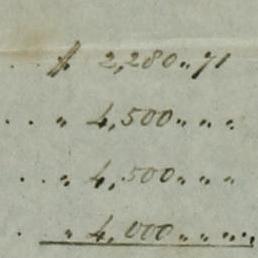 .. $ 2,280..71
.. " 4,500.. " "
.. " 4,500.. " "
. " 4,000.. " "